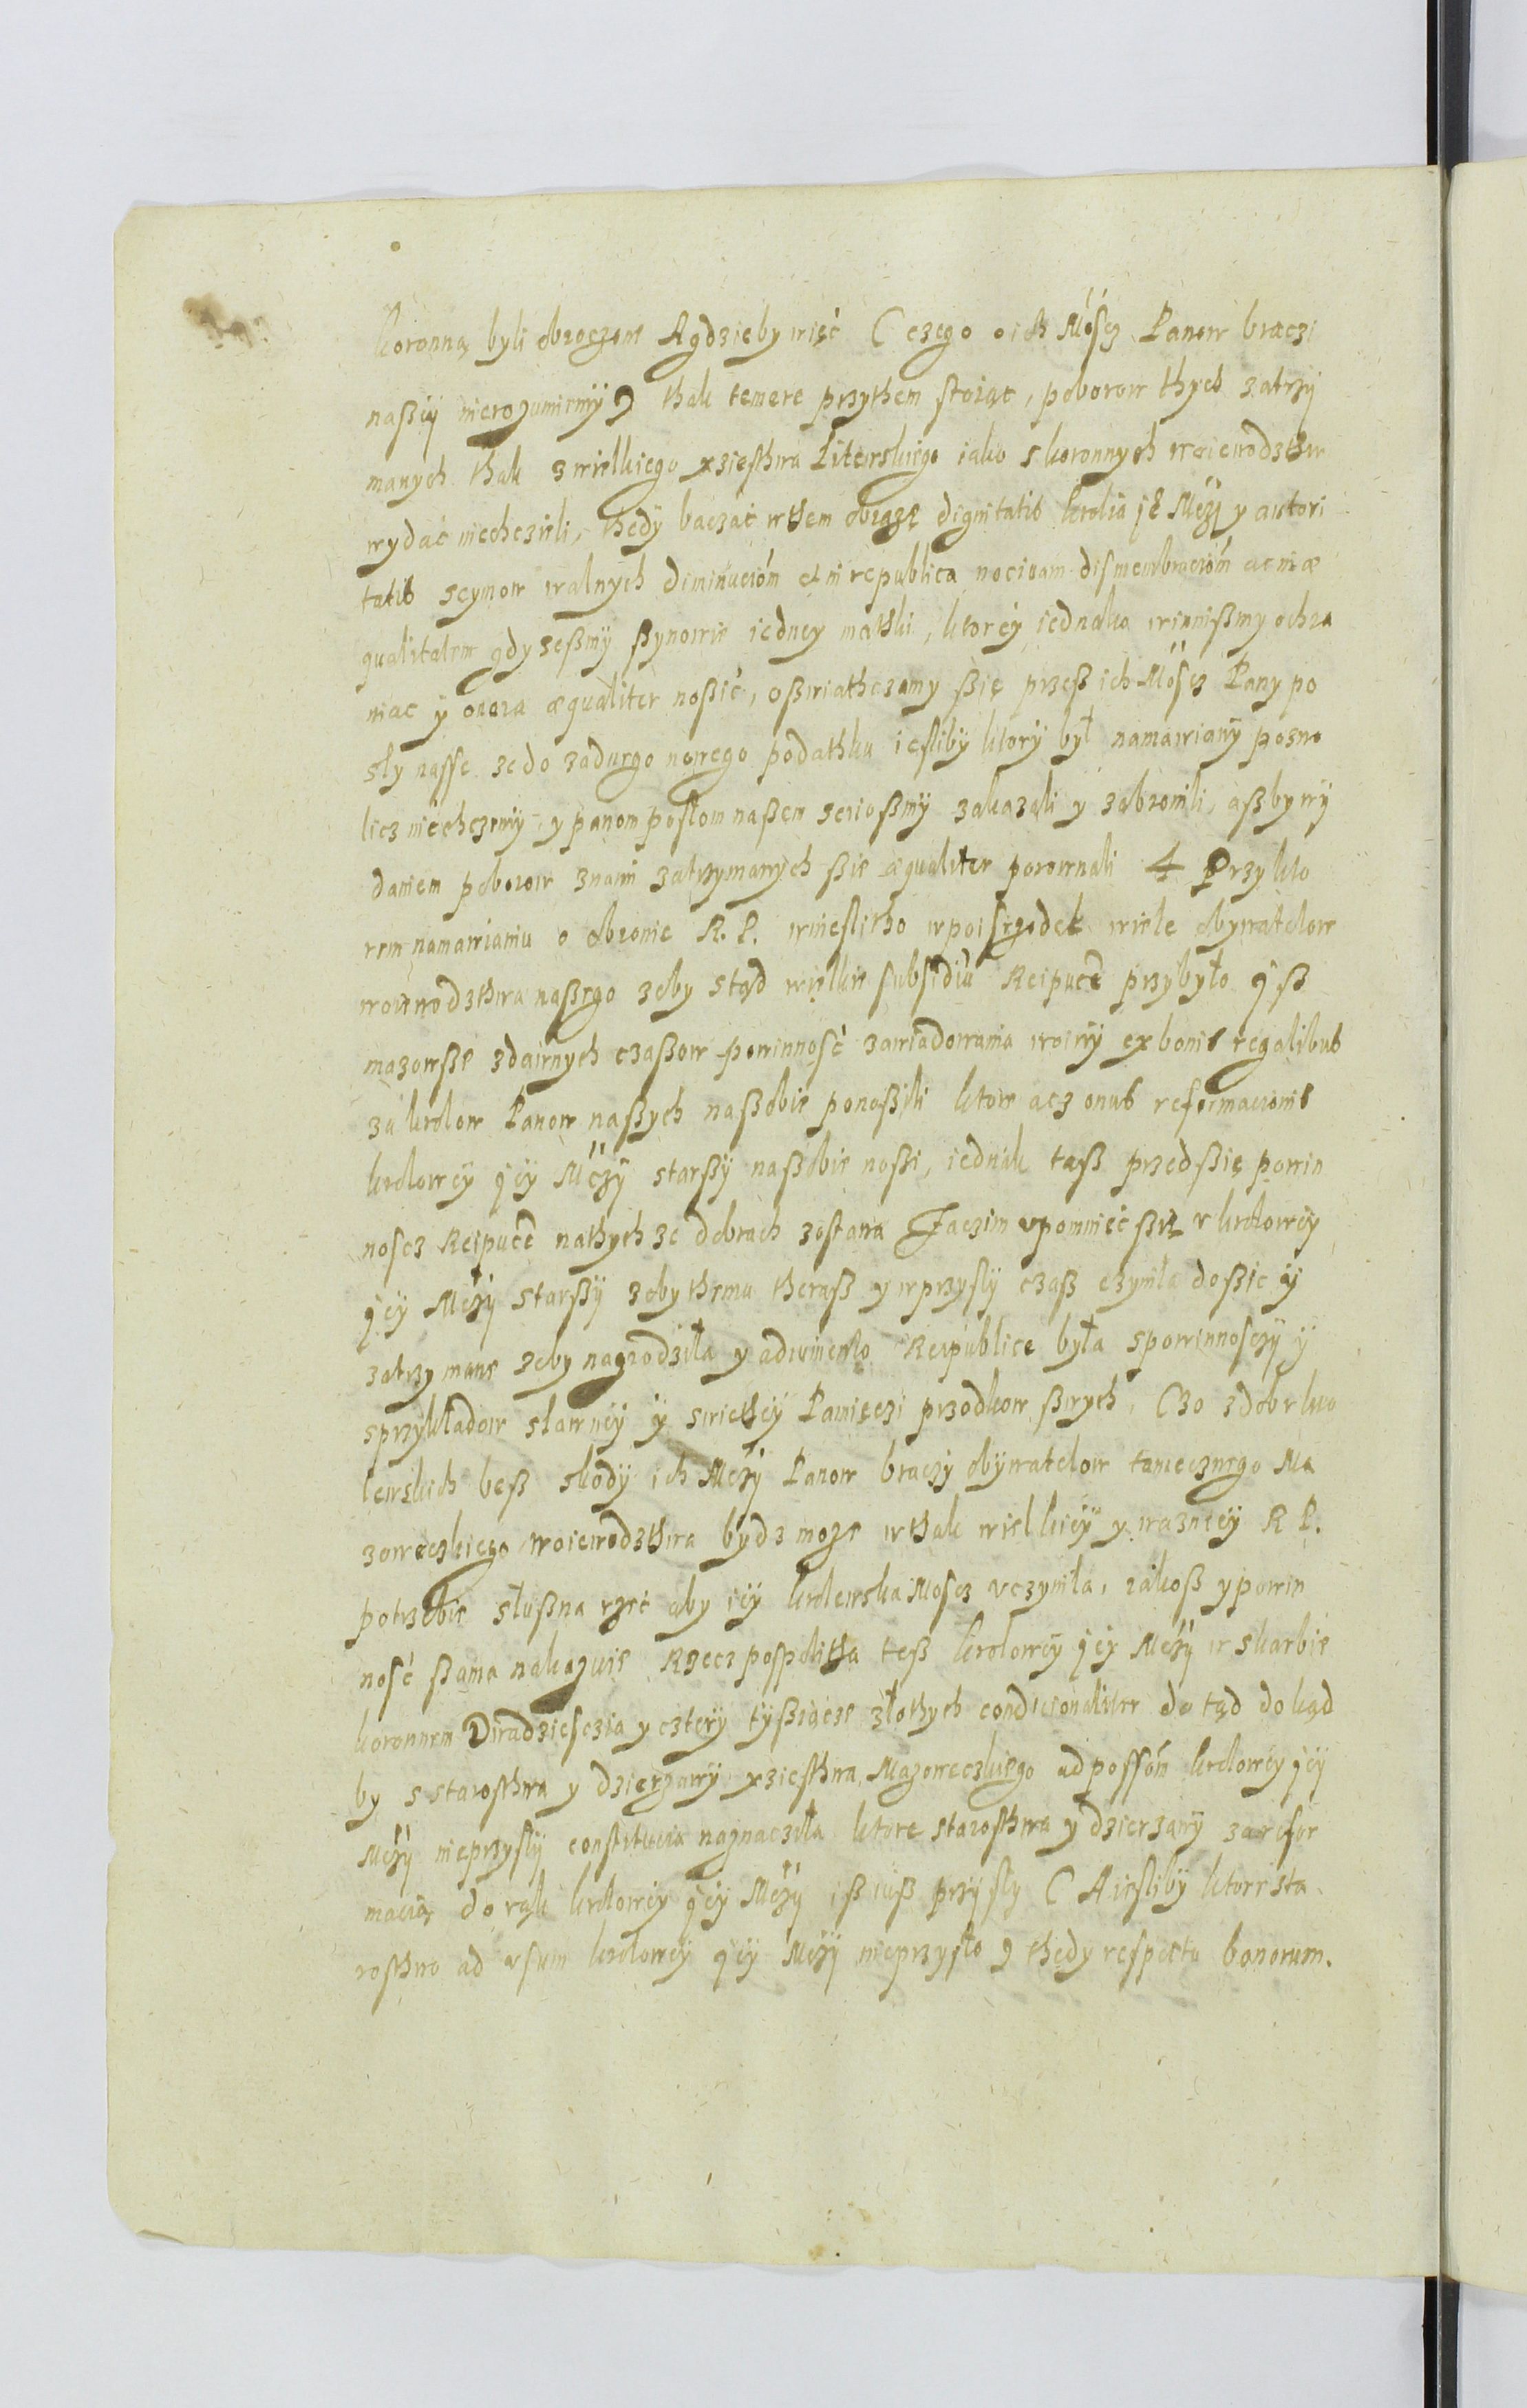 koronną byli obroczone A gdzieby więć ( czego o ich Moscz Panow braczi
naßÿ nierozumiemÿ ) thak temere przythem stoiąc, poborow thych zatrzÿ
manych thak z wielkiego xziesthwa Litewskiego iako s koronnych woiewodzthw
wydać niechczieli, thedÿ baczać wthem obrazę dignitatis krolia je Mczi y autori
tatis seymow walnych diminucion et in republica nocivam dismembracion ac inæ
qualitatem gdy sesmÿ ßynowie iedney mathki, ktoreÿ iednako winnißmy ochra
niac ÿ onera æqualiter noßić, oßwiathczamy ßię przeß ich Moscz Pany po
sły nasse ze do zadnego nowego podathku iesliby ktorÿ był namawianÿ pozwo
licz niechczemÿ, y panom posłom naßem serio ßmÿ zakazali y zabronili, aßby wÿ
daniem poborow znami zatrzymanych ßie æqualiter porownali Przy kto
rem namawianiu o obronie R. P. wniesli tho wpoisrzodek wiele obywatelow
woiewodzthwa naßego zeby stąd wielkie subsidiu Reipuce przybyło yß
mazowße zdawnych czaßow powinność zawiadowania woinÿ ex bonis regalibus
za krolow Panow naßych naßobie ponaßili ktore acz onus reformacionis
kroloweÿ jeÿ Mczÿ starßÿ naßobie noßi, iednak taß przedßię powin
noscz Reipuce nathych ze dobrach zostawa Zaczim vpomnieć ßię v kroloweÿ
jeÿ Mczÿ starßÿ zeby themu theraß y wprzysłÿ czaß czyniła doßic ÿ
zatrzymane zeby nagrodziła y adiumento Reipublice była spowinnosczÿ ÿ
sprzykładow sławneÿ ÿ swietheÿ Pamięczi przodkow ßwych, Czo z dobr kro
lewskich beß skodÿ ich Mczÿ Panow braczÿ obÿwatelow tamecznego Ma
zoweczkiego woiewodzthwa bydz moze wthak wielkieÿ y wazneÿ R P.
potrzebie słußna rzeć aby ieÿ krolewska Moscz vczyniła, iakoß y powin
ność ßama nakazuie Rzecz pospolitha teß kroloweÿ jeÿ Mczÿ w skarbie
koronnem Dwadziesczia y czterÿ tÿßiącze złothych condicionaliter do tąd dokąd
by s starosthwa y dzierzawÿ xziesthwa Mazoweczkiego ad possón kroloweÿ jeÿ
Mczÿ nieprzysłÿ constitucia naznaczÿła ktore starosthwa y dzierzawÿ za refor
macią do rąk kroloweÿ jeÿ Mczÿ iß iuß przÿsły ( A iesliby ktore sta
rosthwo ad vsum kroloweÿ jeÿ Mczÿ nieprzysło ) thedy respectu bonorum.